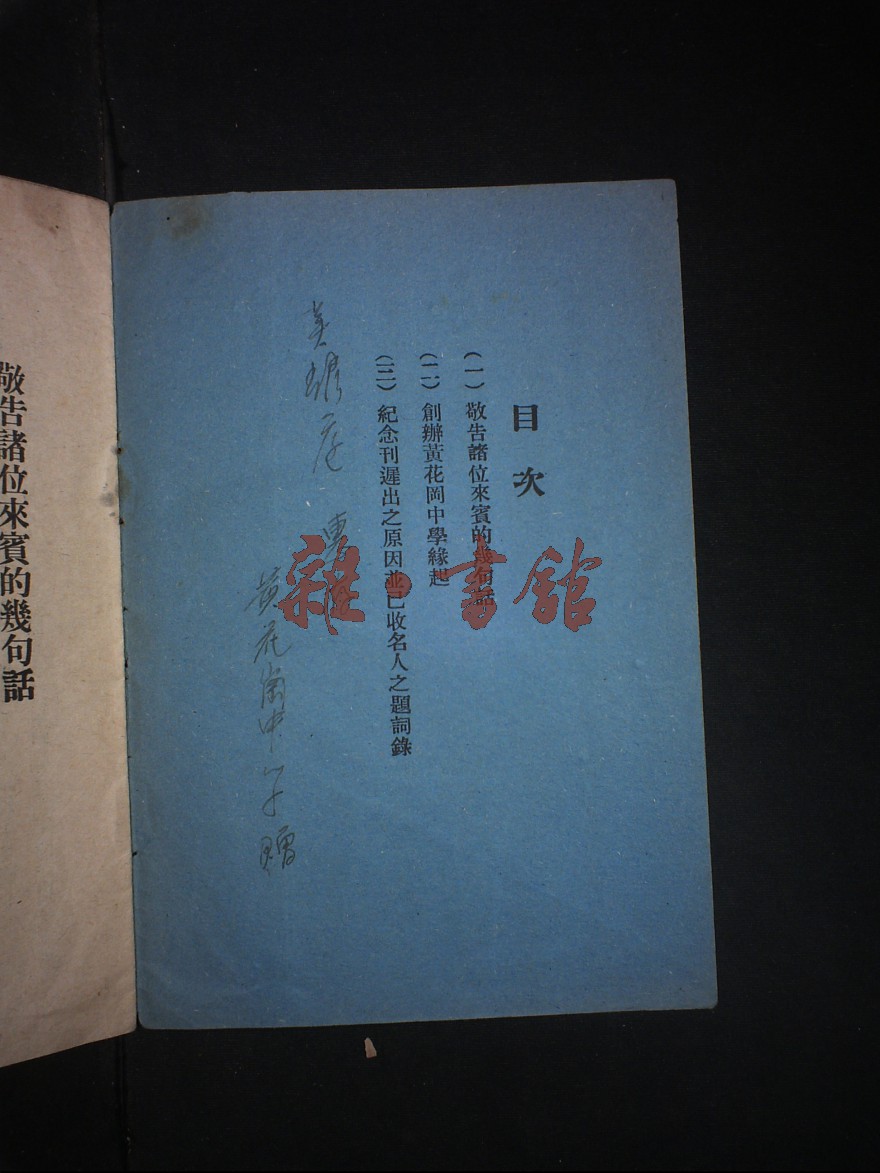 目次
(一) 敬告諸位來賓的幾句話
(二) 創辦黃花岡中學緣起
(三) 紀念刊遲出之原因並已收名人之題詞錄
黃花崗中學贈
雜·書館
敬告諸位來賓的幾句話